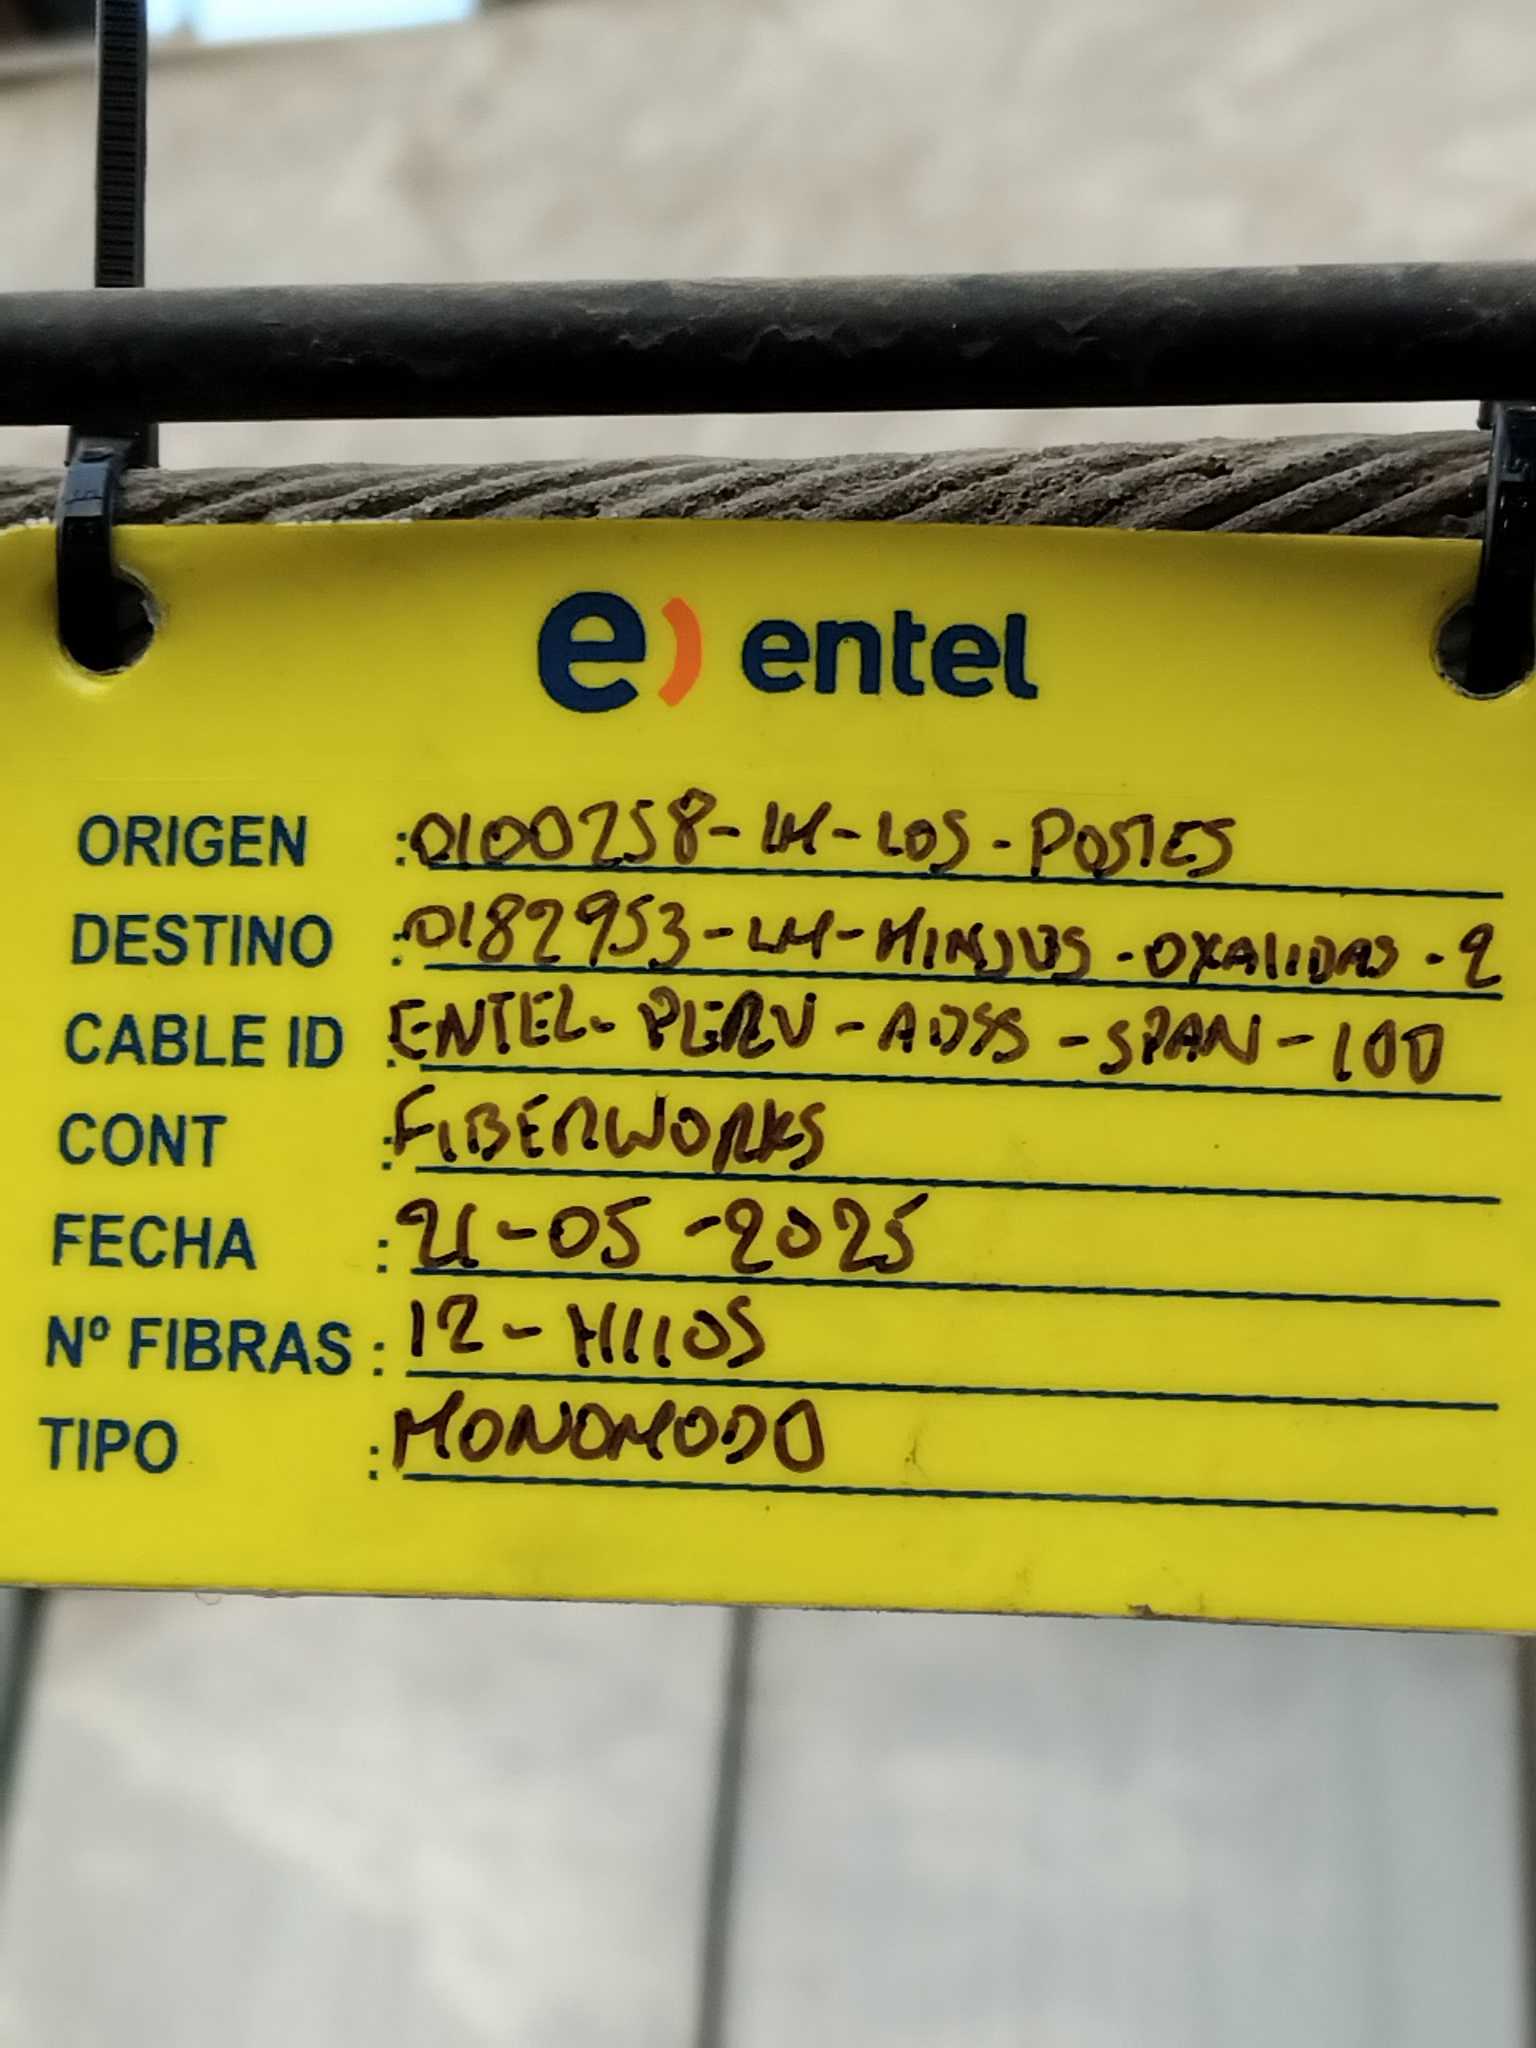 e) entel
ORIGEN : 0100258-LM-LOS-POSTES
DESTINO : 0182953-LM-MINJUS-OXALIDAS-2
CABLE ID : ENTEL-PERU-ADSS-SPAN-100
CONT : FIBERWORKS
FECHA : 21-05-2025
Nº FIBRAS : 12-HILOS
TIPO : MONOMODO